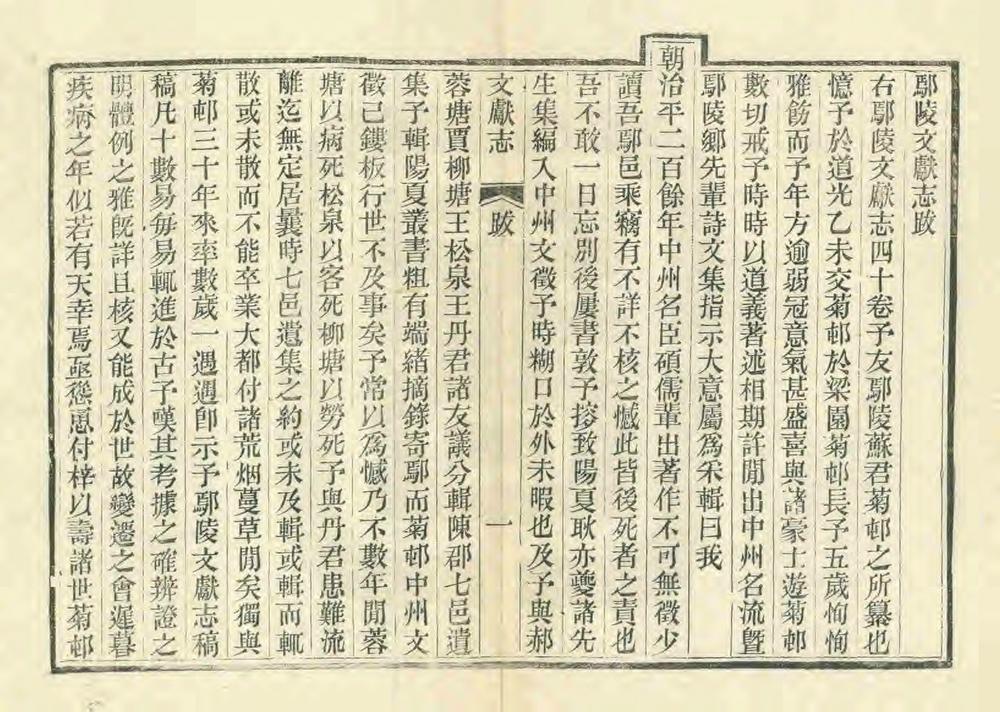 鄢陵文獻志跋
右鄢陵文獻志四十卷予友鄢陵蘇君菊邨之所纂也
憶予於道光乙未交菊邨於梁園菊邨長予五歲恂恂
雅飭而予年方逾弱冠意氣甚盛喜與諸豪士遊菊邨
數切戒予時時以道義著述相期許閒出中州名流暨
鄢陵鄉先輩詩文集指示大意屬爲采輯曰我
朝治平二百餘年中州名臣碩儒輩出著作不可無徵少
讀吾鄢邑乘竊有不詳不核之憾此皆後死者之責也
吾不敢一日忘別後屢書敦予搜致陽夏耿亦夔諸先
生集編入中州文徵予時糊口於外未暇也及予與郝
文獻志 跋 一
蓉塘賈柳塘王松泉王丹君諸友議分輯陳郡七邑遺
集予輯陽夏叢書粗有端緒摘錄寄鄢而菊邨中州文
徵已鏤板行世不及事矣予常以爲憾乃不數年閒蓉
塘以病死松泉以客死柳塘以勞死予與丹君患難流
離迄無定居曩時七邑遺集之約或未及輯或輯而輒
散或未散而不能卒業大都付諸荒烟蔓草閒矣獨與
菊邨三十年來率數歲一遇遇卽示予鄢陵文獻志稿
稿凡十數易每易輒進於古予嘆其考據之確辨證之
明體例之雅旣詳且核又能成於世故變遷之會遲暮
疾病之年似若有天幸焉亟慫恿付梓以壽諸世菊邨